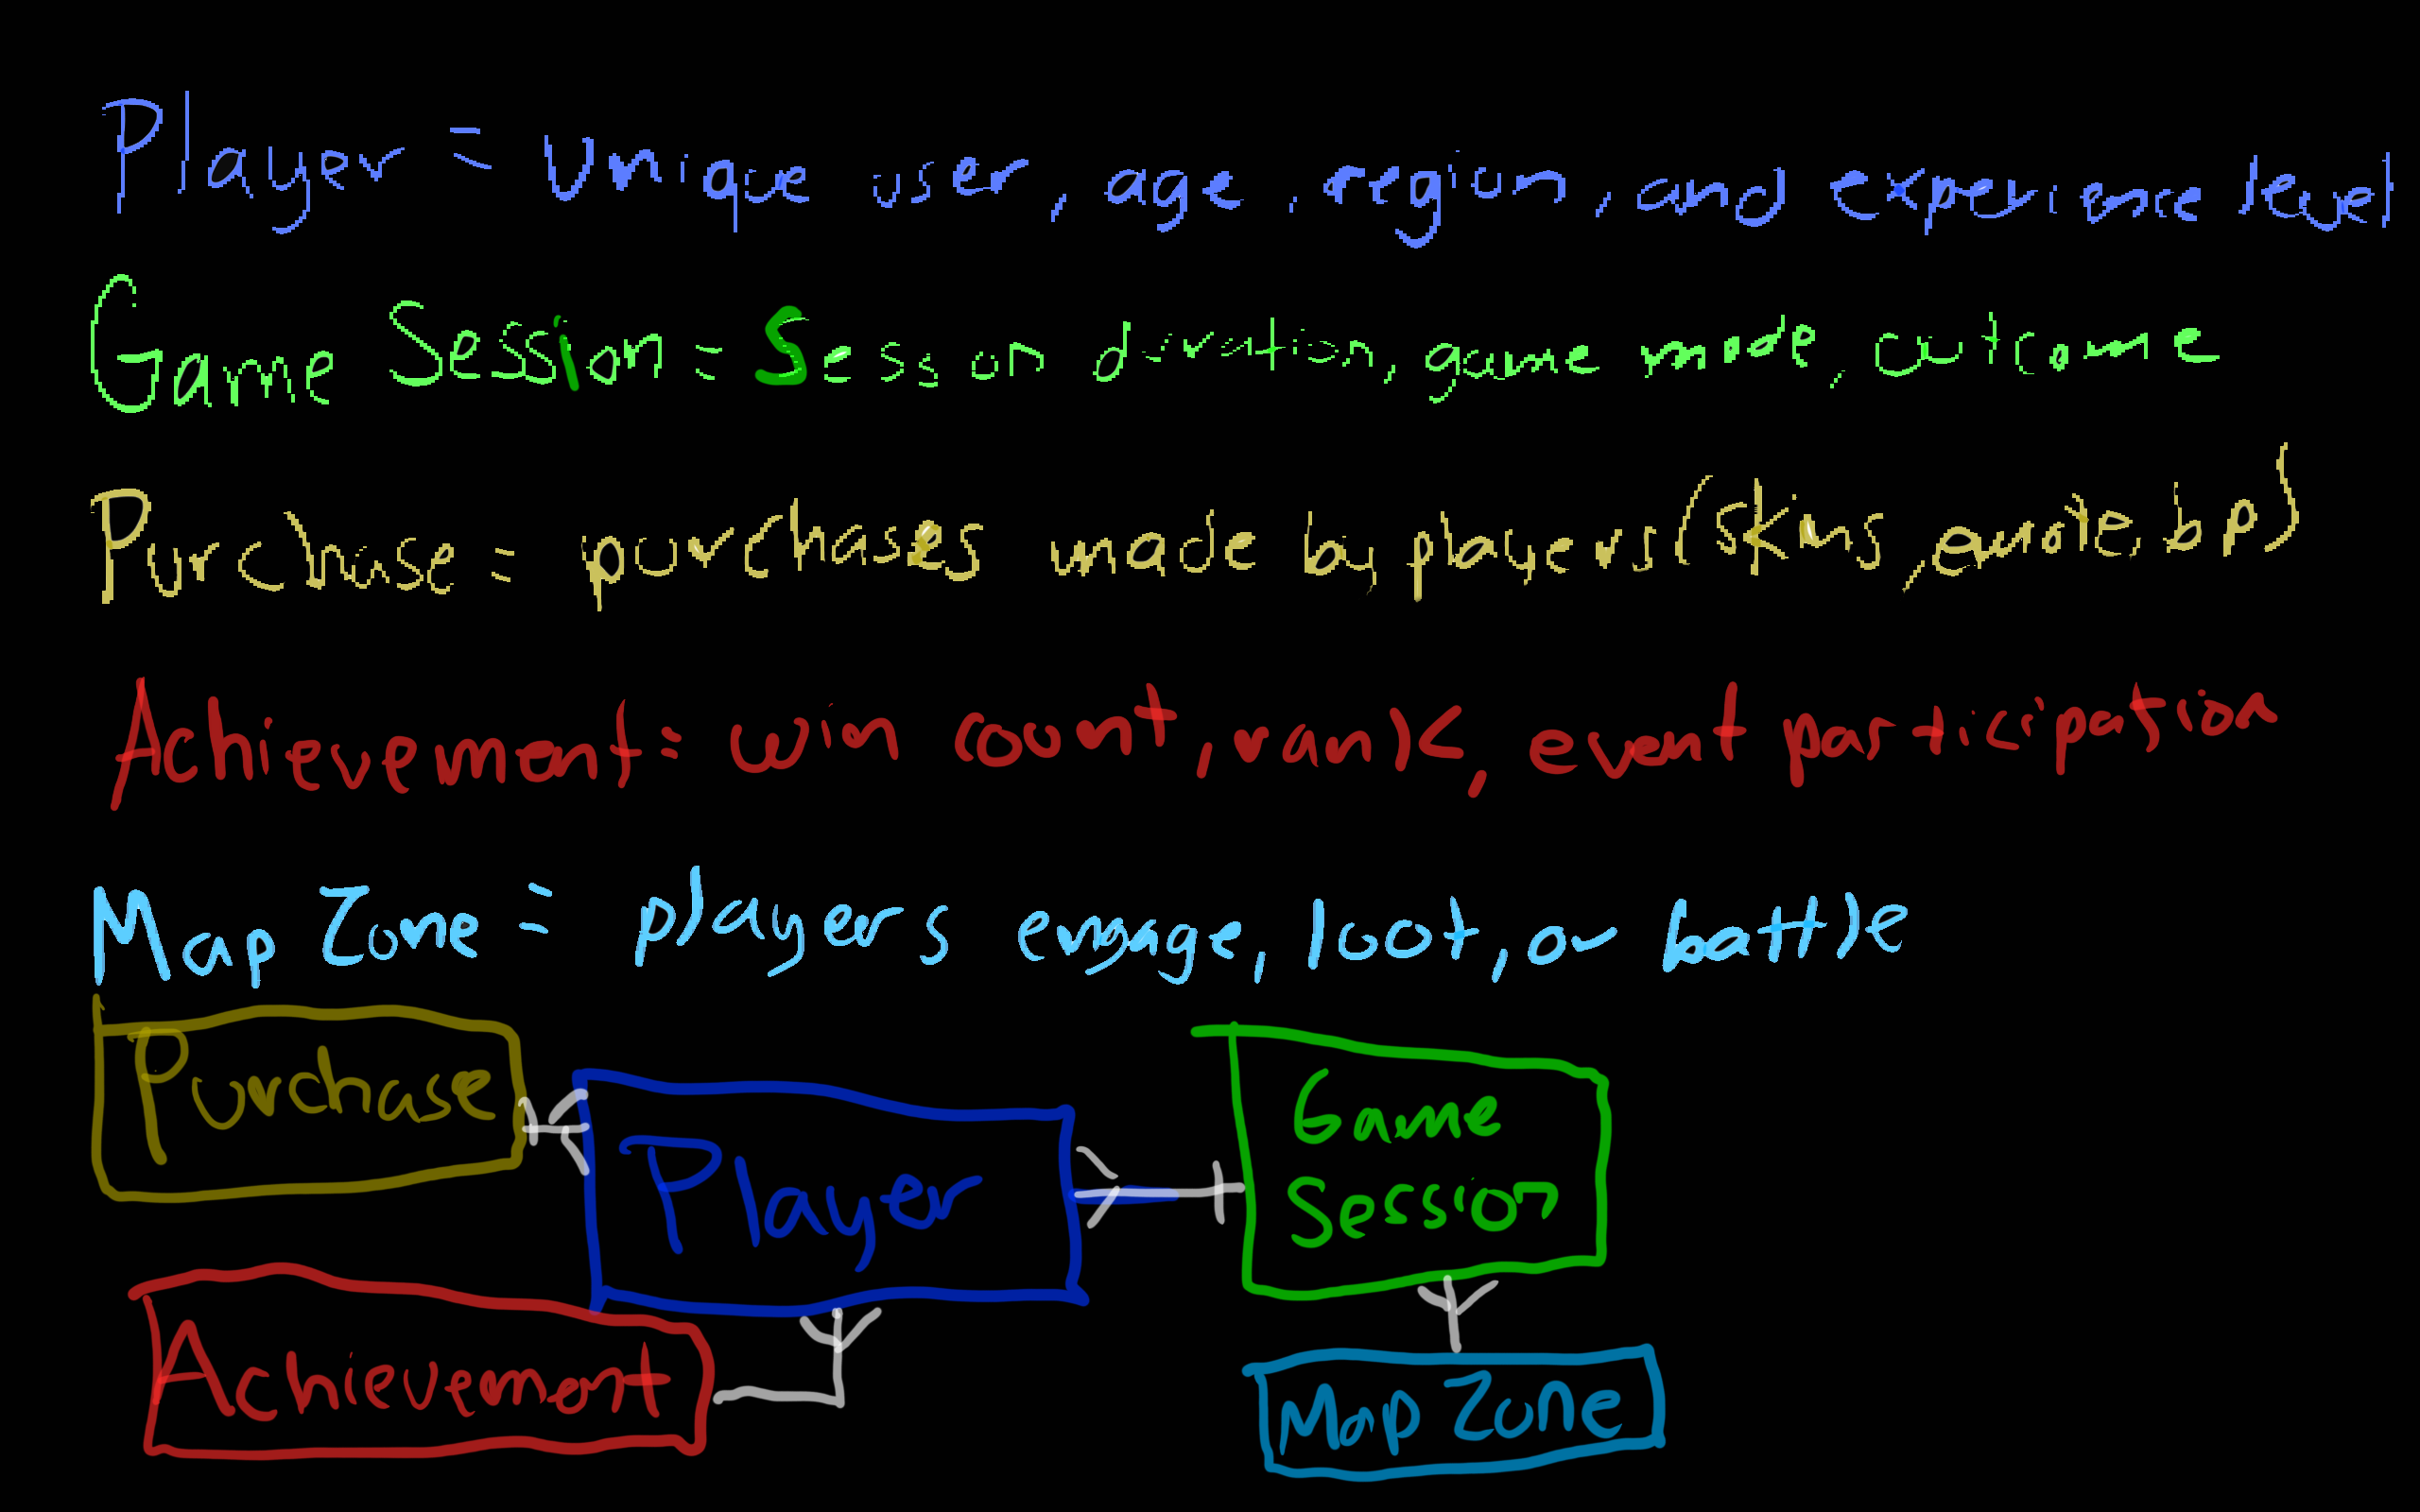 Player = Unique user, age, region, and experience level
Game Session = Session duration, game mode, outcome
Purchase = purchases made by players (skins, emote, bp)
Achievement = win count, rank, event participation
Map Zone = players engage, loot, or battle
Purchase
Player
Game
Session
Achievement
Map Zone